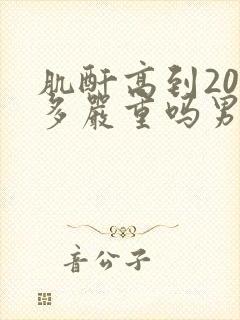 肌酐高到20
多嚴重吗男
音公子